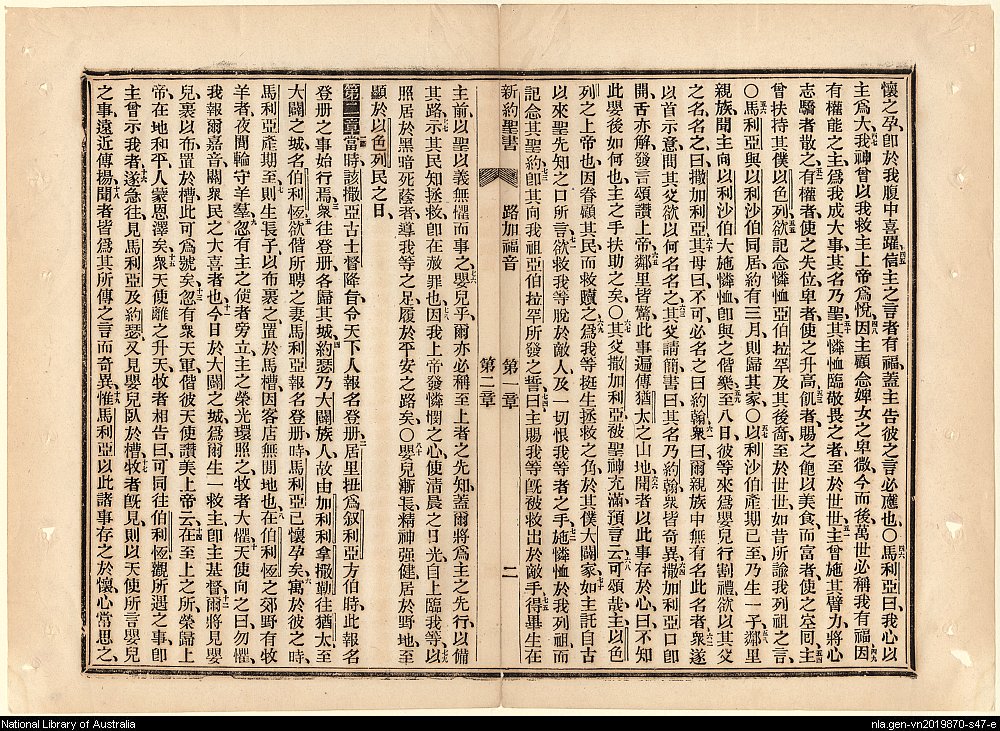 懷之孕、卽於我腹中喜躍、信主之言者有福、蓋主告彼之言必應也、〇馬利亞曰、我心以
主爲大、我神曾以我救主上帝爲悅、因主顧念婢女之卑微、今而後萬世必稱我有福、因
有權能之主、爲我成大事、其名乃聖、其憐恤臨敬畏之者、至於世世、主曾施其臂力、將心
志驕者散之、有權者使之失位、卑者使之升高、飢者賜之飽以美食、而富者使之空囘、主
曾扶持其僕以色列、欲記念憐恤亞伯拉罕及其後裔、至於世世、如昔所諭我列祖之言、
〇馬利亞與以利沙伯同居約有三月、則歸其家、〇以利沙伯產期已至、乃生一子、鄰里
親族聞主向以利沙伯大施憐恤、卽與之偕樂、至八日、彼等來爲嬰兒行割禮、欲以其父
之名名之、曰撒加利亞、其母曰、不可、必名之曰約翰、衆曰、爾親族中無有名此名者、衆遂
以首示意、問其父欲以何名名之、其父請簡書曰、其名乃約翰、衆皆奇異、撒加利亞口卽
開、舌亦解、發言頌讚上帝、鄰里皆驚、此事遍傳猶太之山地、聞者以此事存於心、曰、不知
此嬰後如何也、主之手扶助之矣、〇其父撒加利亞被聖神充滿、預言云、可頌哉、主以色
列之上帝也、因眷顧其民而救贖之、爲我等挺生拯救之角、於其僕大闢家、如主託自古
以來聖先知之口所言、欲救我等脫於敵人、及一切恨我等者之手、施憐恤於我列祖、而
記念其聖約、卽其向我祖亞伯拉罕所發之誓、曰、主賜我等旣被救出於敵手、得畢生在
新約聖書 路加福音 第一章 第二章 二
主前、以聖以義無懼而事之、嬰兒乎、爾亦必稱至上者之先知、蓋爾將爲主之先行、以備
其路、示其民知拯救、卽在赦罪也、因我上帝發憐憫之心、使淸晨之日光、自上臨我等、以
照居於黑暗死蔭者、導我等之足、履於平安之路矣、〇嬰兒漸長、精神强健、居於野地、至
顯於以色列民之日、
第二章 當時該撒亞古士督降旨、令天下人報名登册、居里扭爲叙利亞方伯時、此報名
登册之事始行焉、衆往登册、各歸其城、約瑟乃大闢族人、故由加利利拿撒勒往猶太至
大闢之城、名伯利恆、欲偕所聘之妻馬利亞報名登册、時馬利亞已懷孕矣、寓於彼之時、
馬利亞產期至、則生長子、以布裹之、置於馬槽、因客店無閒地也、在伯利恆之郊野有牧
羊者、夜間輪守羊羣、忽有主之使者旁立、主之榮光環照之、牧者大懼、天使向之曰、勿懼、
我報爾嘉音、關衆民之大喜者也、今日於大闢之城、爲爾生一救主、卽主基督、爾將見嬰
兒裹以布置於槽、此可爲號矣、忽有衆天軍偕彼天使讚美上帝云、在至上之所榮歸上
帝、在地和平、人蒙恩澤矣、衆天使離之升天、牧者相告曰、可同往伯利恆、觀所遇之事、卽
主曾示我者、遂急往、見馬利亞及約瑟、又見嬰兒臥於槽、牧者旣見、則以天使所言嬰兒
之事、遠近傳揚、聞者皆爲其所傳之言而奇異、惟馬利亞以此諸事存之於懷、心常思之、
National Library of Australia
nla.gen-vn2019870-s47-e